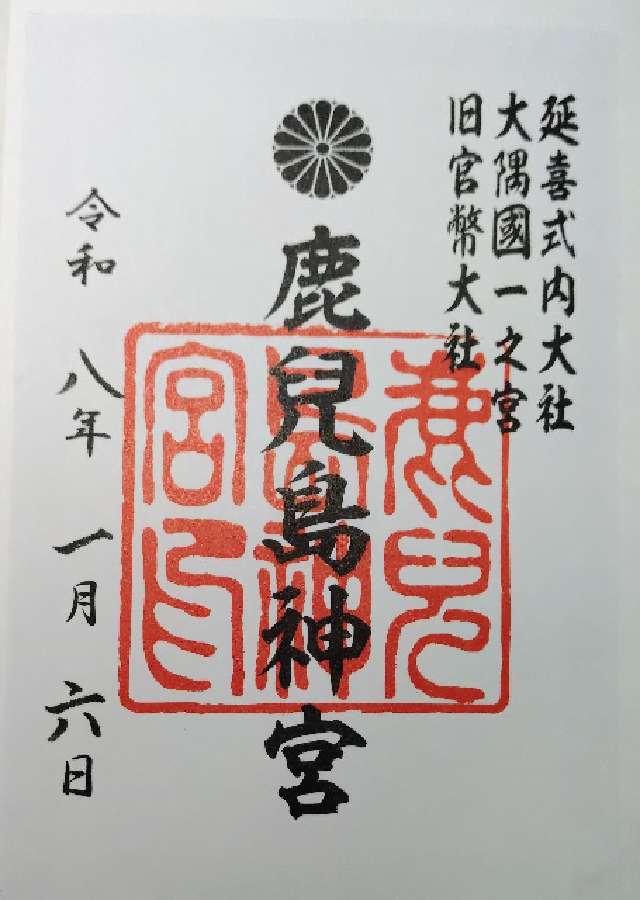 延喜式内大社
大隅國一之宮
旧官幣大社
鹿兒島神宮
鹿兒
島神
宮印
令和 八年 一月 六日